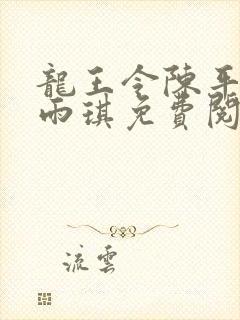 龍王令陳平
雨琪免費閱
流雲